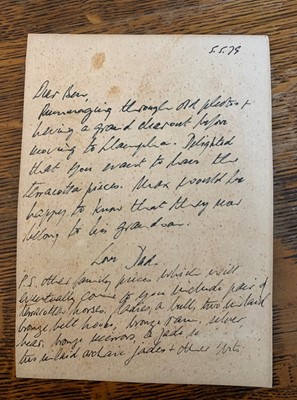 5.5.79
Dear Ben,
Rummaging through old photos +
having a grand clearout before
moving to Llangplha. Delighted
that you want to have the
terracotta pieces. Max would be
happy to know that they now
belong to his grandson.
Love Dad.
P.S. other family pieces which will
eventually come to you include pair of
terracotta horses, ladies, a bull, two inlaid
bronze belt hooks, bronze ram, silver
bear, bronze mirrors, & jade
two inlaid archaic jades + other